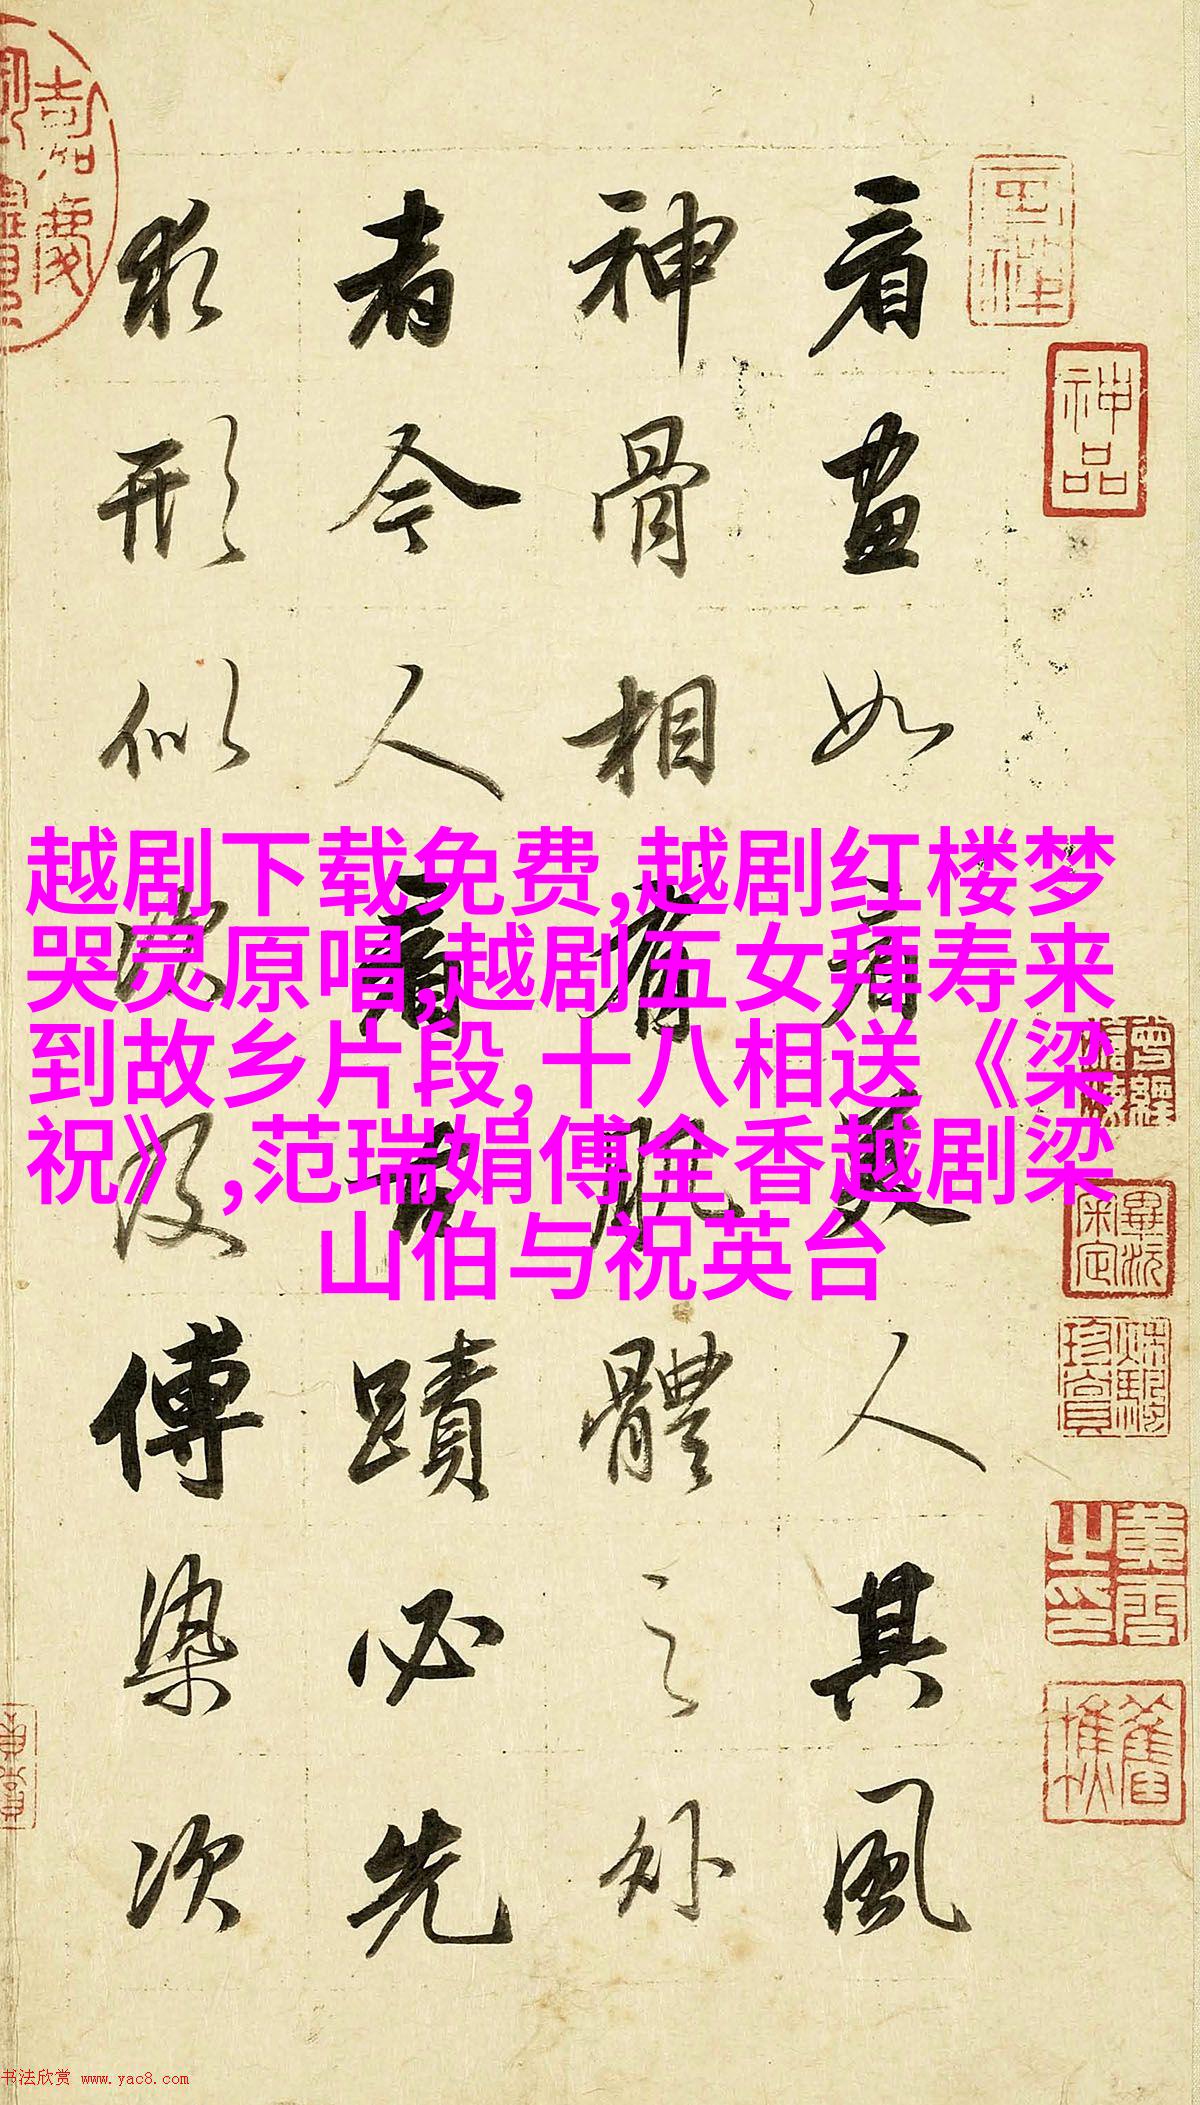 看畫如看美人其風
神骨相有肌體之外
者今人看古蹟必先
求形似次及傅染次
神品
越剧下载免费,越剧红楼梦
哭灵原唱,越剧五女拜寿来
到故乡片段,十八相送《梁
祝》,范瑞娟傅全香越剧梁
山伯与祝英台
书法欣赏 www.yac8.com